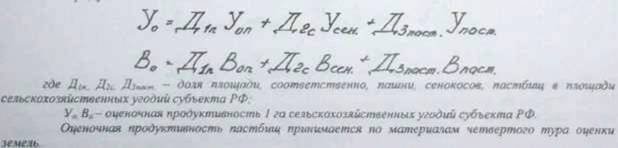 У₀ = Д₁ₙ Уоп + Д₂с Усен. + Д₃паст. Упаст.
В₀ = Д₁ₙ Воп + Д₂с Всен. + Д₃паст. Впаст.
где Д₁ₙ, Д₂с, Д₃паст. – доля площади, соответственно, пашни, сенокосов, пастбищ в площади
сельскохозяйственных угодий субъекта РФ;
У₀, В₀ – оценочная продуктивность 1 га сельскохозяйственных угодий субъекта РФ.
Оценочная продуктивность пастбищ принимается по материалам четвертого тура оценки
земель.